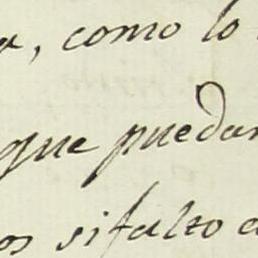 , como lo
que puedan
os si falto a